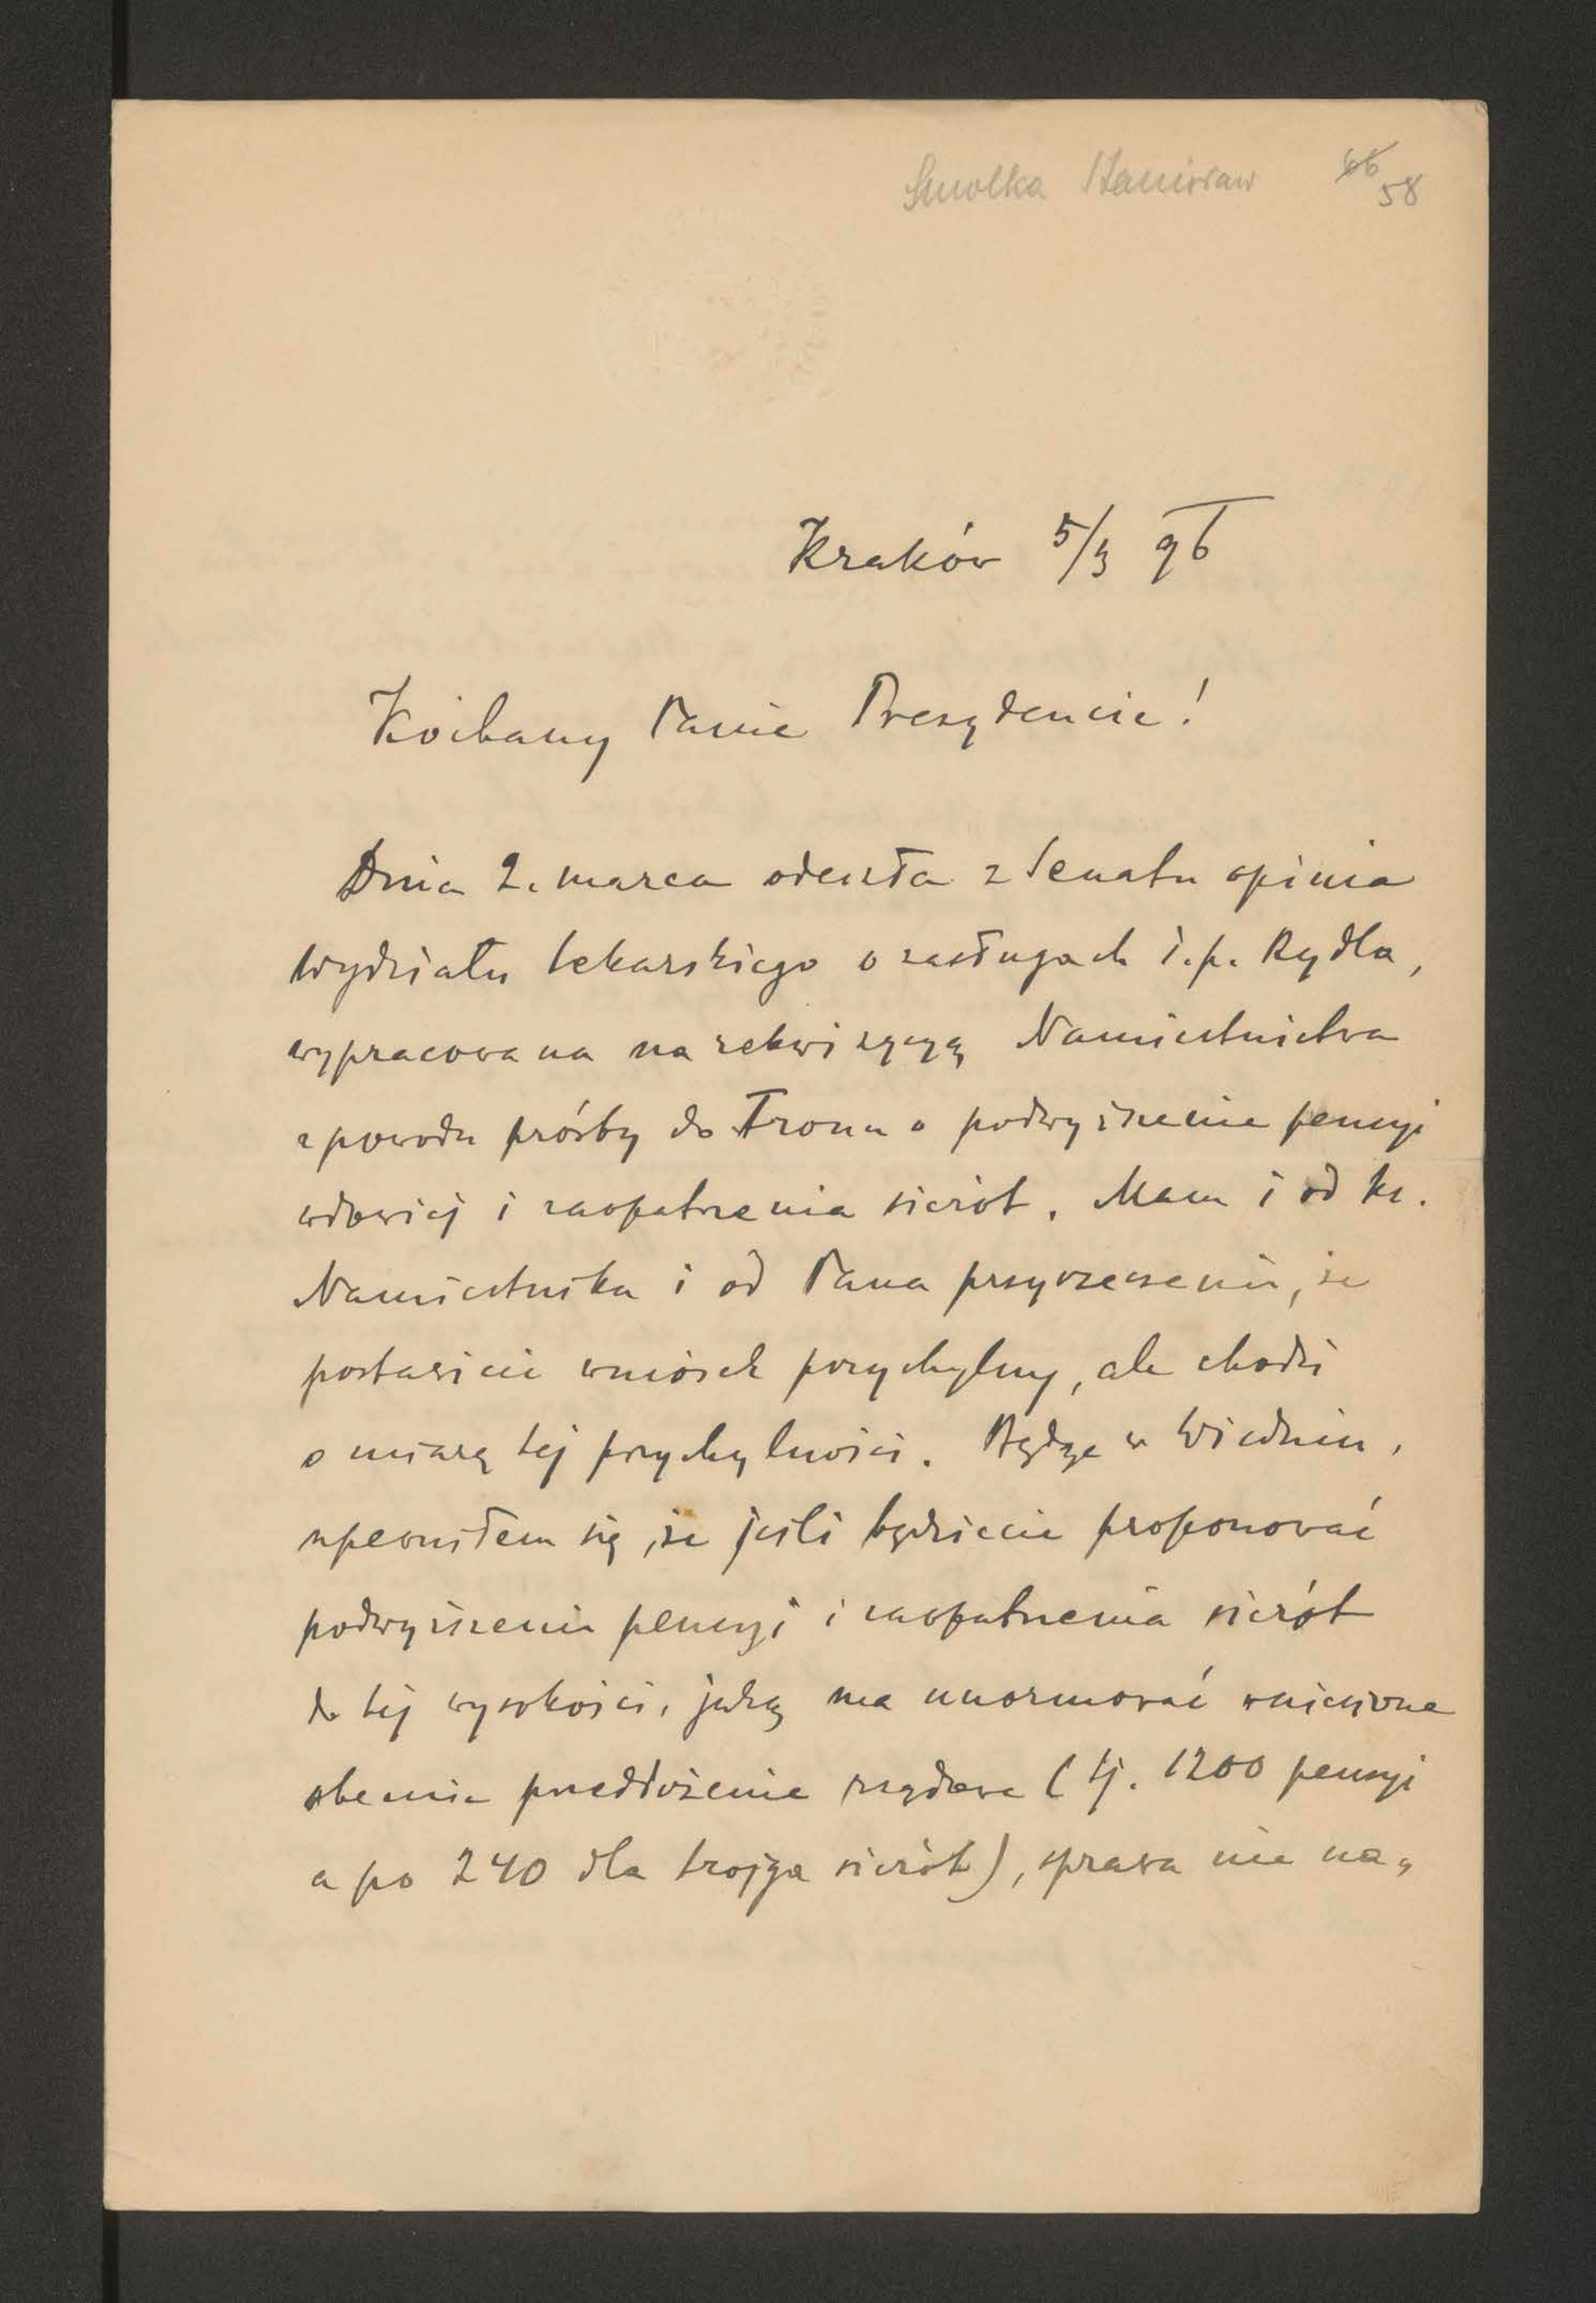 Smolka Stanisław 66 58
Kraków 5/3 96
Kochany Panie Prezydencie!
Dnia 2. marca odeszła z Senatu opinia
Wydziału lekarskiego o zasługach ś.p. Rydla,
wypracowana na rekwizycyą Namiestnictwa
z powodu prośby do Tronu o podwyższenie pensyi
wdowiej i zaopatrzenia sierót. Mam i od ks.
Namiestnika i od Pana przyrzeczenie, że
postawicie wniosek przychylny, ale chodzi
o miarę tej przychylności. Będąc w Wiedniu,
upewniłem się, że jeśli będziecie proponować
podwyższenie pensyi i zaopatrzenia sierót
do tej wysokości, jaką ma unormować wniesione
obecnie przedłożenie rządowe (tj. 1200 pensyi
a po 240 dla trojga sierót), sprawa nie na„